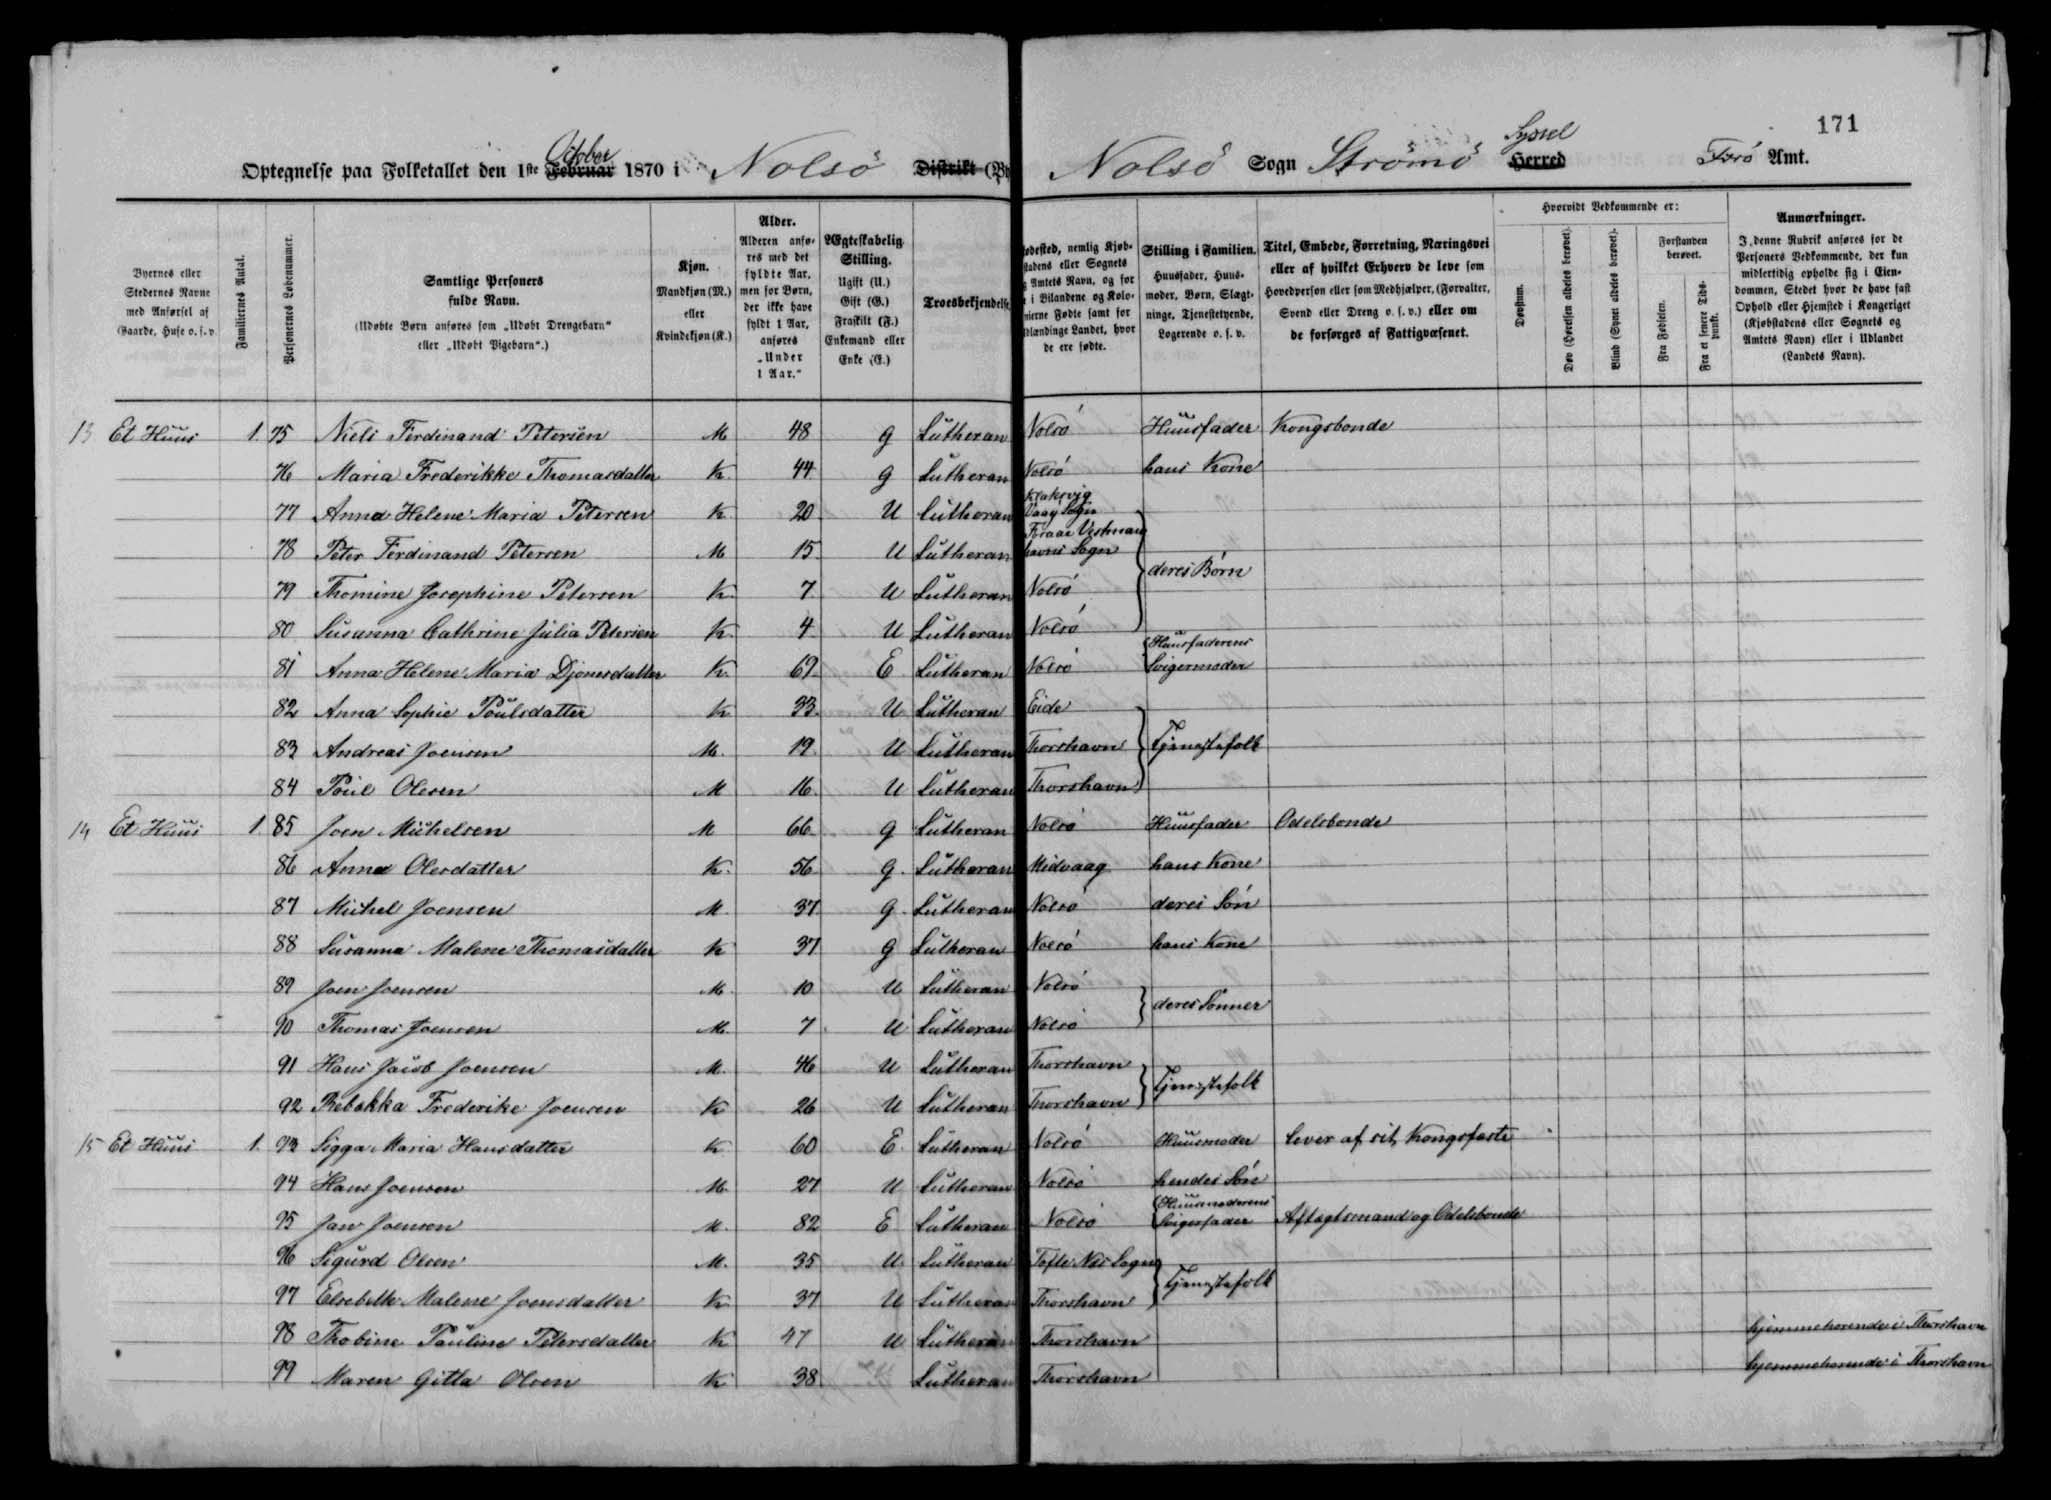 171
October Syssel
Optegnelse paa Folketallet den 1ste Februar 1870 i Nolsö Distrikt (By Nolsö Sogn Strömö Herred Færö Amt.
Byernes eller Stedernes Navne med Anførsel af Gaarde, Huse o. s. v.
Familiernes Antal.
Personernes Løbenummer.
Samtlige Personers fulde Navn. (Udøbte Børn anføres som „Udøbt Drengebarn“ eller „Udøbt Pigebarn“.)
Kjøn. Mandkjøn (M.) eller Kvindekjøn (K.)
Alder. Alderen anføres med det fyldte Aar, men for Børn, der ikke have fyldt 1 Aar, anføres „Under 1 Aar.“
Ægteskabelig Stilling. Ugift (U.) Gift (G.) Fraskilt (F.) Enkemand eller Enke (E.)
Troesbekjendelse
ødested, nemlig Kjøbstadens eller Sognets g Amtets Navn, og for i Bilandene og Kolonierne Fødte samt for dlændinge Landet, hvor de ere fødte.
Stilling i Familien. Huusfader, Huusmoder, Børn, Slægtninge, Tjenestetyende, Logerende o. s. v.
Titel, Embede, Forretning, Næringsvei eller af hvilket Erhverv de leve som Hovedperson eller som Medhjælper, (Forvalter, Svend eller Dreng o. s. v.) eller om de forsørges af Fattigvæsenet.
Hvorvidt Vedkommende er:
Døvstum.
Døv (Hørelsen aldeles berøvet).
Blind (Synet aldeles berøvet).
Forstanden berøvet.
Fra Fødselen.
Fra et senere Tidspunkt.
Anmærkninger. I denne Rubrik anføres for de Personers Vedkommende, der kun midlertidig opholde sig i Eiendommen, Stedet hvor de have fast Ophold eller Hjemsted i Kongeriget (Kjøbstadens eller Sognets og Amtets Navn) eller i Udlandet (Landets Navn).
13 Et Huus 1 75 Niels Ferdinand Petersen M 48 g Lutheran Nolsó Huusfader Kongsbonde
76 Maria Frederikke Thomasdatter K 44 g Lutheran Nolsó hans Kone
77 Anna Helene Maria Petersen K 20 U Lutheran Klaksvig Vaag Sogn
78 Peter Ferdinand Petersen M 15 U Lutheran Vestman havns Sogn
deres Børn
79 Thomine Josephine Petersen K 7 U Lutheran Nolsó
80 Susanna Cathrine Julia Petersen K 4 U Lutheran Nolsó
81 Anna Helene Maria Djonesdatter K 69 E Lutheran Nolsó Huusfaderens Svigermoder
82 Anna Sophie Poulsdatter K 33 U Lutheran Eide
83 Andreas Joensen M. 19 U Lutheran Thorshavn Tjenestefolk
84 Poul Olesen M 16 U Lutheran Thorshavn
14 Et Huus 1 85 Joen Michelsen M 66 g Lutheran Nolsó Huusfader Odelsbonde
86 Anna Olesdatter K. 56 g. Lutheran Midvaag hans Kone
87 Michel Joensen M. 37 g. Lutheran Nolsó deres Són
88 Susanna Malene Thomasdatter K 37 g Lutheran Nolsó hans Kone
89 Joen Joensen M. 10 U Lutheran Nolsó
deres Sønner
90 Thomas Joensen M. 7 U Lutheran Nolsó
91 Hans Jacob Joensen M. 46 U Lutheran Thorshavn
Tjenestefolk
92 Rebekka Frederike Joensen K 26 U Lutheran Thorshavn
15 Et Huus 1. 93 Sigga Maria Hansdatter K 60 E. Lutheran Nolsó Huusmoder Lever af sit Kongsfæste
94 Hans Joensen M. 27 U Lutheran Nolsó hendes Són
95 Jan Joensen M. 82 E Lutheran Nolsó Huusmoderens Svigerfader Aftægtsmand og Odelsbonde
96 Sigurd Olsen M. 35 U Lutheran Tofte Næs Sogn
97 Elsebeth Malene Joensdatter K 37 U Lutheran Thorshavn Tjenestefolk
98 Thobine Pauline Petersdatter K 47 U Lutheran Thorshavn hjemmehørende i Thorshavn
99 Maren Gitta Olsen K 38 Lutheran Thorshavn hjemmehørende i Thorshavn